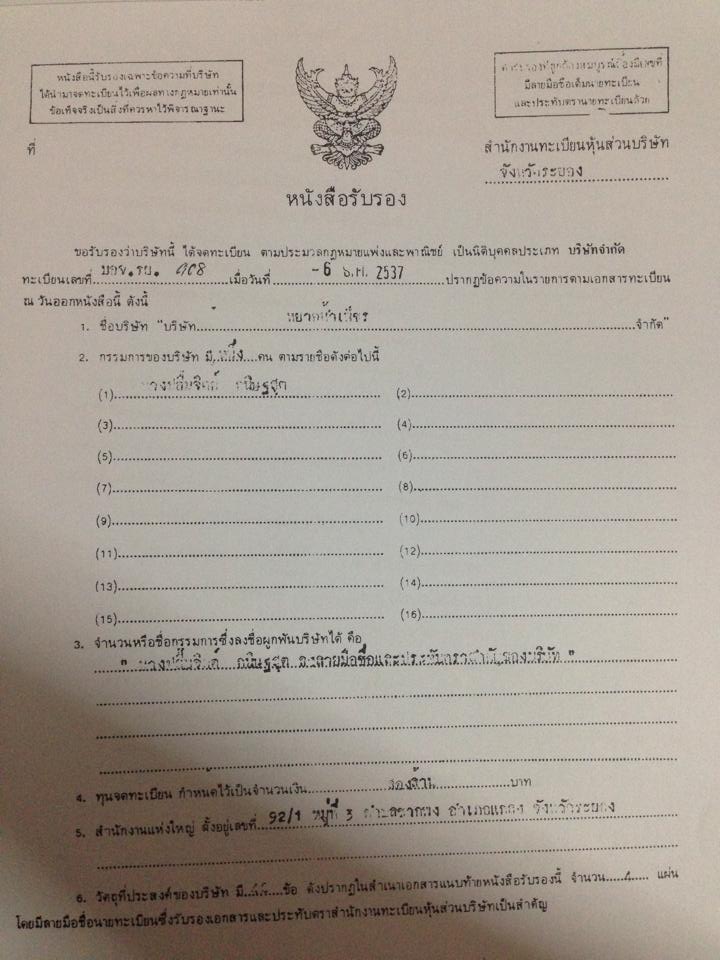 หนังสือนี้รับรองเฉพาะข้อความที่บริษัท
ได้นำมาจดทะเบียนไว้เพื่อผลทางกฎหมายเท่านั้น
ข้อเท็จจริงเป็นสิ่งที่ควรหาไว้พิจารณาฐานะ
มีลายมือชื่อเต็มนายทะเบียน
และประทับตรานายทะเบียนด้วย
ที่
สำนักงานทะเบียนหุ้นส่วนบริษัท
จังหวัดระยอง
หนังสือรับรอง
ขอรับรองว่าบริษัทนี้ ได้จดทะเบียน ตามประมวลกฎหมายแพ่งและพาณิชย์ เป็นนิติบุคคลประเภท บริษัทจำกัด
ทะเบียนเลขที่ บอจ.รย. 908 เมื่อวันที่ -6 ธ.ค. 2537 ปรากฏข้อความในรายการตามเอกสารทะเบียน
ณ วันออกหนังสือนี้ ดังนี้
1. ชื่อบริษัท "บริษัท หยาดน้ำเพชร จำกัด"
2. กรรมการของบริษัท มี หนึ่ง คน ตามรายชื่อดังต่อไปนี้
(1) นางปลื้มจิตต์ กนิษฐสุต (2)
(3) (4)
(5) (6)
(7) (8)
(9) (10)
(11) (12)
(13) (14)
(15) (16)
3. จำนวนหรือชื่อกรรมการซึ่งลงชื่อผูกพันบริษัทได้ คือ
" นางปลื้มจิตต์ กนิษฐสุต ลงลายมือชื่อและประทับตราสำคัญของบริษัท "
4. ทุนจดทะเบียน กำหนดไว้เป็นจำนวนเงิน สองล้าน บาท
5. สำนักงานแห่งใหญ่ ตั้งอยู่เลขที่ 92/1 หมู่ที่ 3 ตำบลชากพง อำเภอแกลง จังหวัดระยอง
6. วัตถุที่ประสงค์ของบริษัท มี ข้อ ดังปรากฏในสำเนาเอกสารแนบท้ายหนังสือรับรองนี้ จำนวน แผ่น
โดยมีลายมือชื่อนายทะเบียนซึ่งรับรองเอกสารและประทับตราสำนักงานทะเบียนหุ้นส่วนบริษัทเป็นสำคัญ